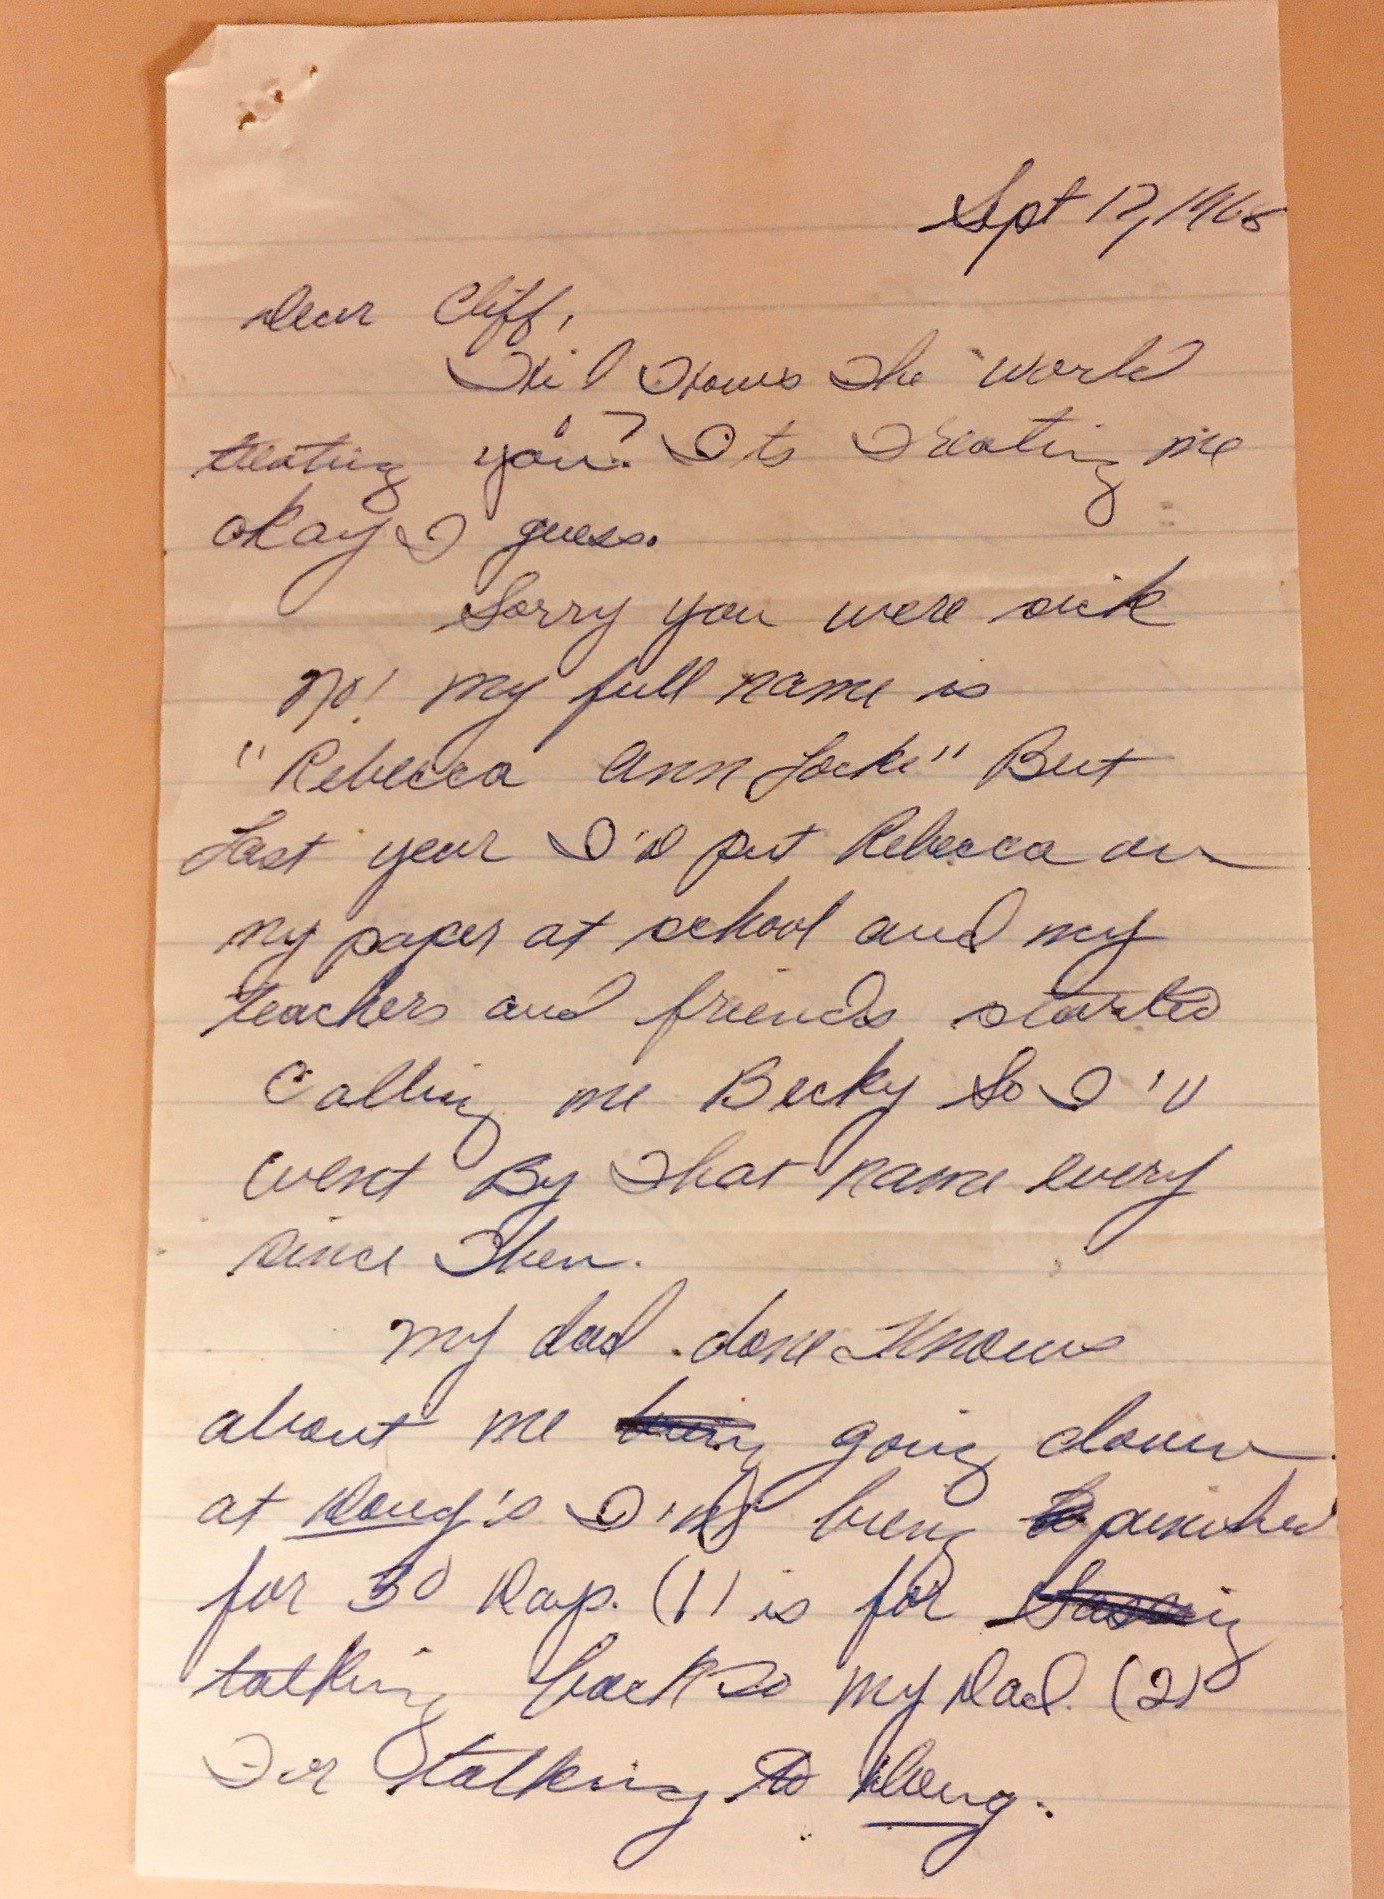 Sept 17, 1968
Dear Cliff,
Hi! Hows the world
treating you? Its treating me
okay I guess.
Sorry you were sick
No! my full name is
"Rebecca Ann Locke" But
Last year I'd put Rebecca on
my paper at school and my
teachers and friends started
calling me Becky So I'll
went By that name every
since then.
My dad done Knows
about me going down
at Doug's I'm being punished
for 30 Days. (1) is for
talking back to my Dad. (2)
For talking to Doug.